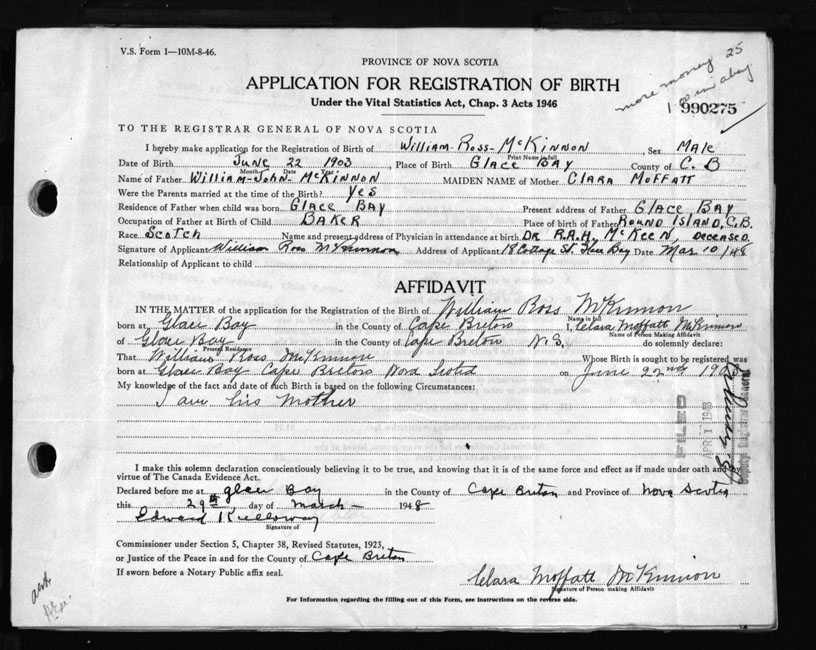 V.S. Form 1—10M-8-46.
PROVINCE OF NOVA SCOTIA
25
more money
APPLICATION FOR REGISTRATION OF BIRTH
Under the Vital Statistics Act, Chap. 3 Acts 1946
990275
TO THE REGISTRAR GENERAL OF NOVA SCOTIA
I hereby make application for the Registration of Birth of William-Ross-McKinnon, Sex Male
Print Name in full
Date of Birth June 22 1903, Place of Birth Glace Bay County of C.B
Month Date Year
Name of Father William-John-McKinnon MAIDEN NAME of Mother Clara Moffatt
Were the Parents married at the time of the Birth? Yes
Residence of Father when child was born Glace Bay Present address of Father Glace Bay
Occupation of Father at Birth of Child Baker Place of birth of Father Round Island, C.B.
Race Scotch Name and present address of Physician in attendance at birth Dr R.A.H. McKeen, deceased.
Signature of Applicant William Ross McKinnon Address of Applicant 18 Cottage St. Glace Bay Date Mar 10/48
Relationship of Applicant to child
AFFIDAVIT
IN THE MATTER of the application for the Registration of the Birth of William Ross McKinnon
Name in full
born at Glace Bay in the County of Cape Breton I, Clara Moffatt McKinnon
Name of Person Making Affidavit
of Glace Bay in the County of Cape Breton N.S. do solemnly declare:
Present Residence
That William Ross McKinnon Whose Birth is sought to be registered was
born at Glace Bay Cape Breton Nova Scotia on June 22nd 1903
My knowledge of the fact and date of such Birth is based on the following Circumstances:
I am his Mother
FILED
APR 1 1948
Deputy Registrar General
I make this solemn declaration conscientiously believing it to be true, and knowing that it is of the same force and effect as if made under oath and by
virtue of The Canada Evidence Act.
Declared before me at Glace Bay in the County of Cape Breton and Province of Nova Scotia
this 29th day of March 1948
Edward Kelloway
Signature of
Commissioner under Section 5, Chapter 38, Revised Statutes, 1923,
or Justice of the Peace in and for the County of Cape Breton
If sworn before a Notary Public affix seal.
Clara Moffatt McKinnon
Signature of Person making Affidavit
For Information regarding the filling out of this Form, see instructions on the reverse side.